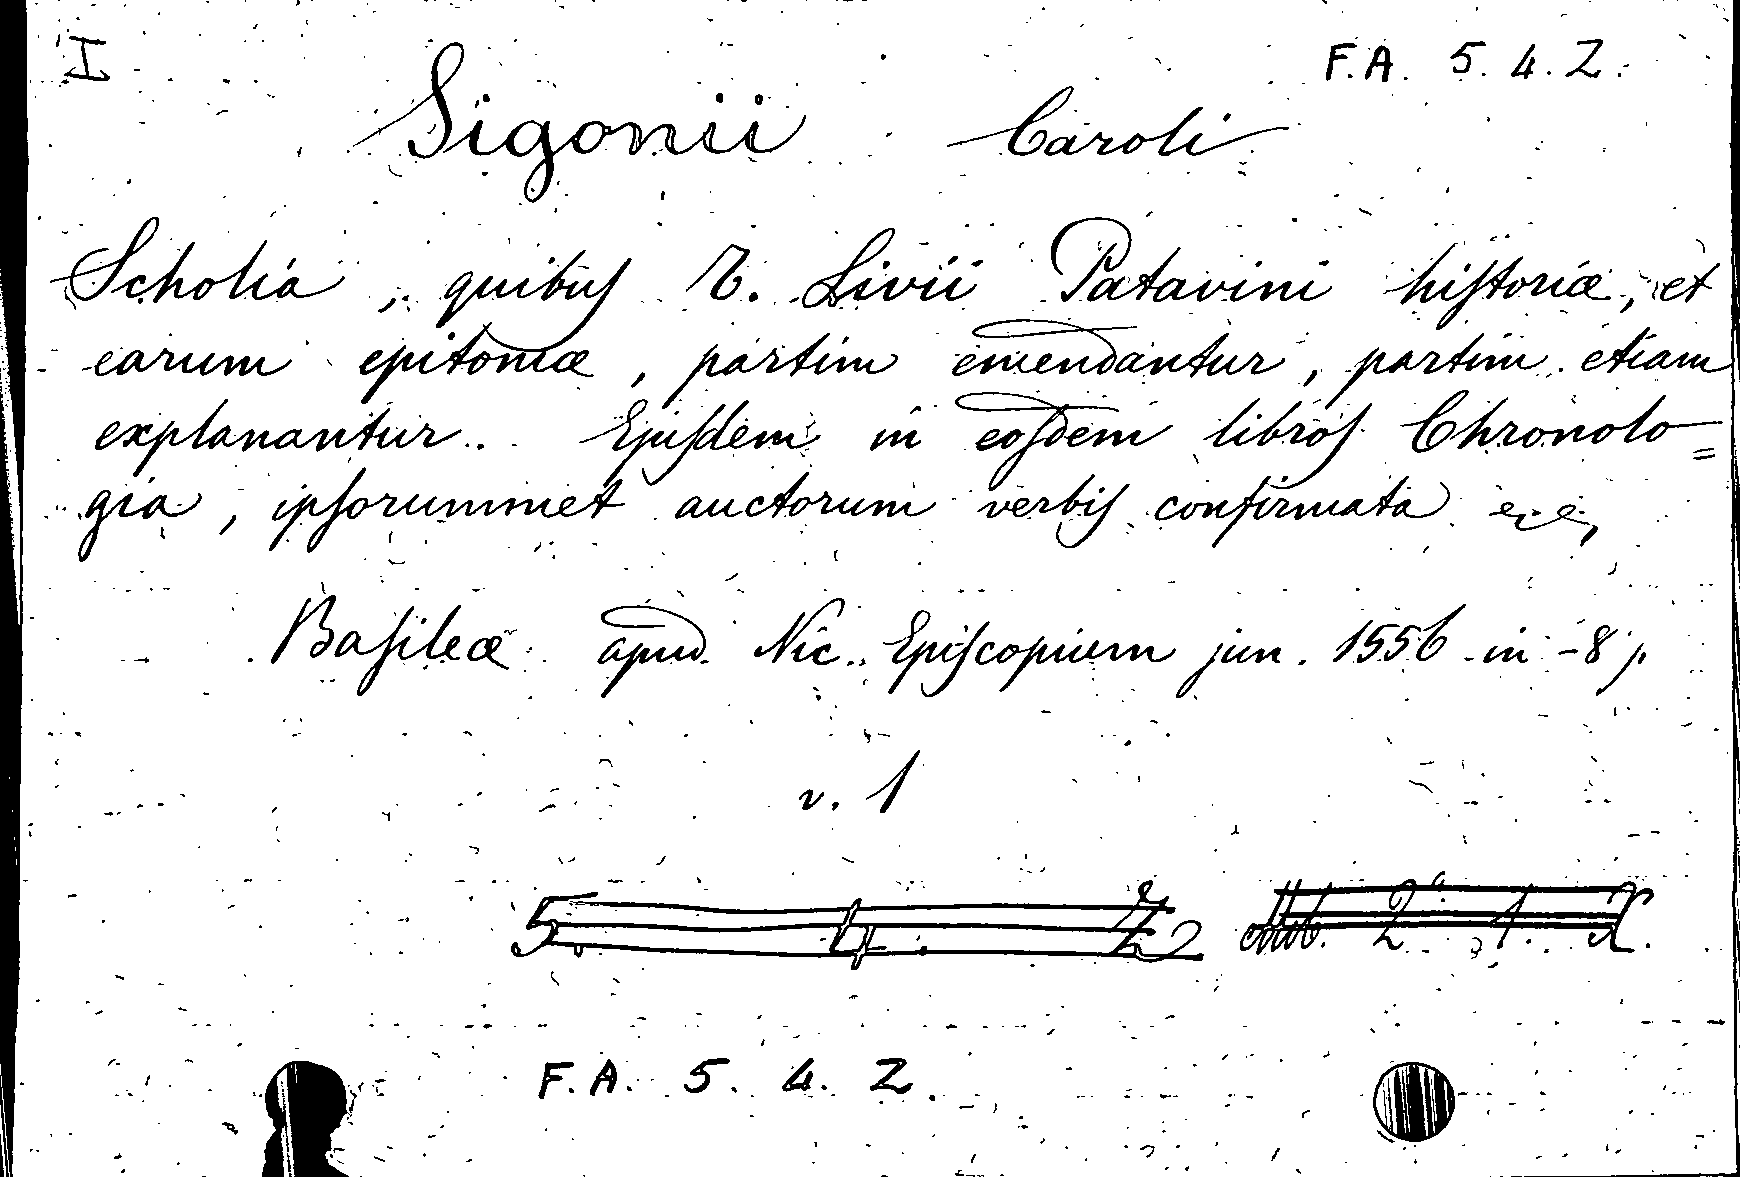 I
F.A. 5. 4. Z.
Sigonii Caroli
Scholia, quibuſ T. Livii Patavini hiſtoriæ, et
earum epitomæ, partim emendantur, partim etiam
explanantur. Ejuſdem in eoſdem libroſ Chronolo=
gia, ipſorummet auctorum verbiſ confirmata
Baſileæ apud Nic. Epiſcopium jun. 1556 in-8 p.
v. 1
5. 4. Z
F.A. 5. 4. Z.